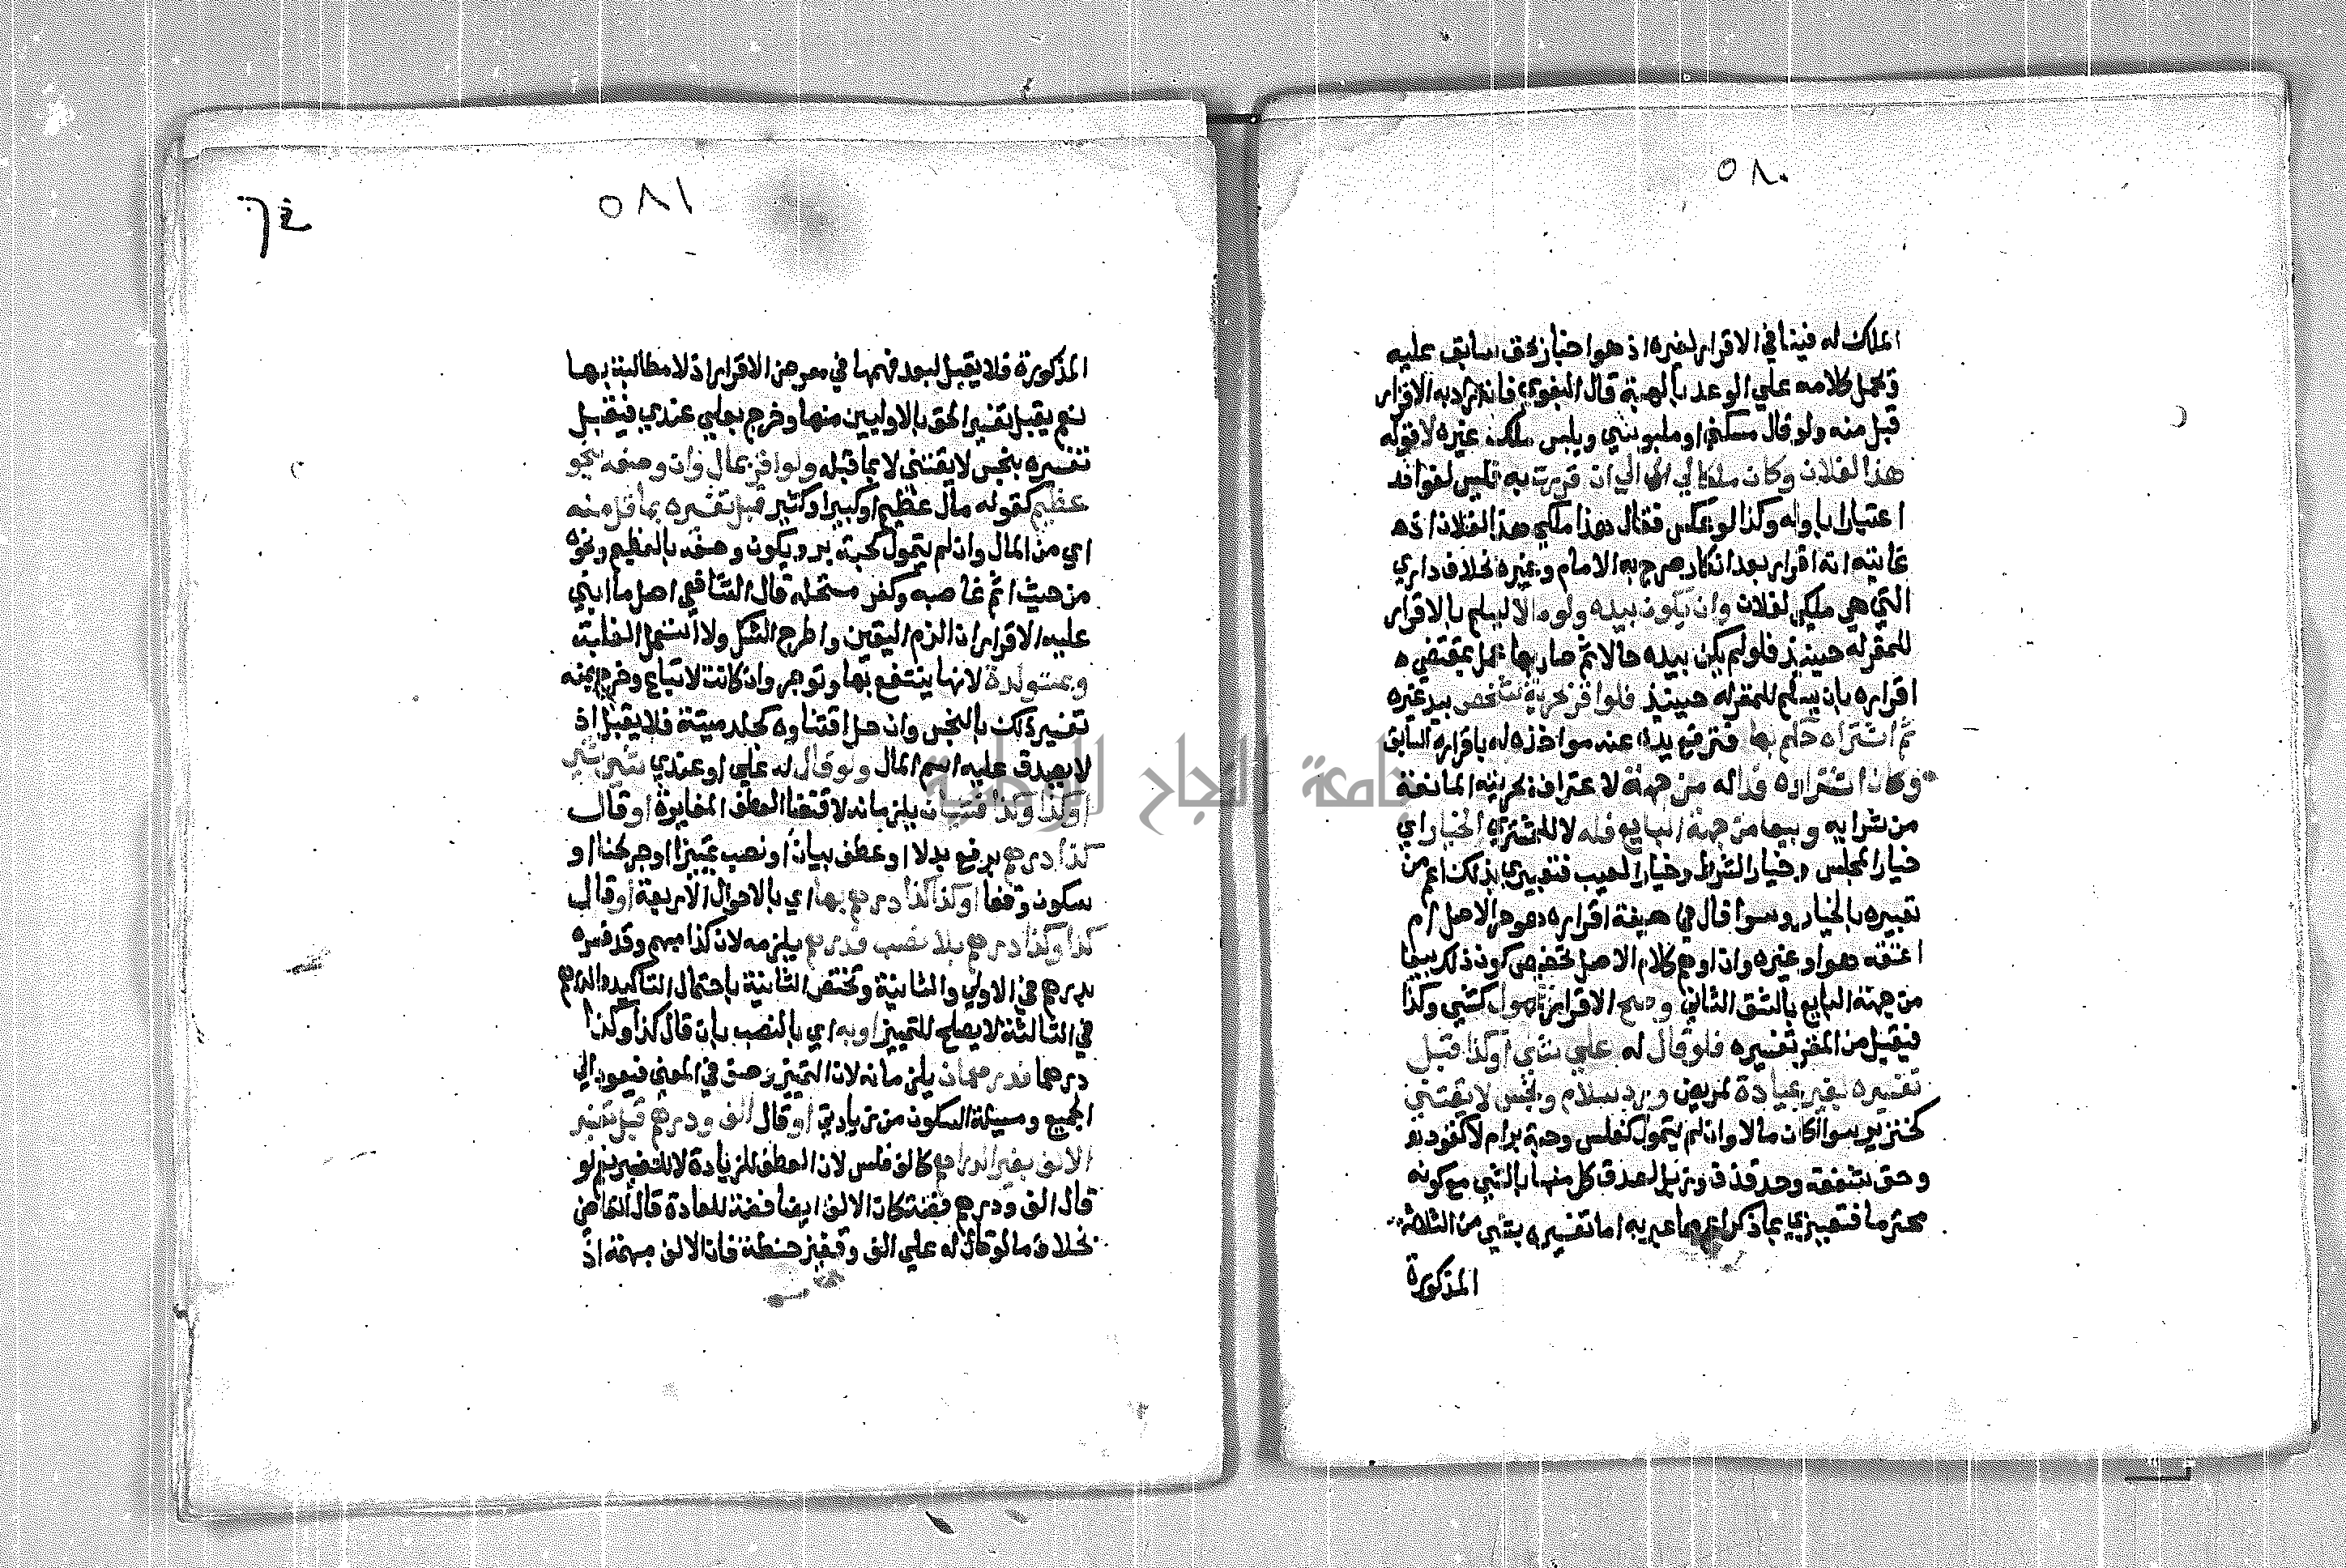 ٥٨٠
الملك له فينافي الاقرار لغيره اذ هو اخبار بحق سابق عليه
ويحمل كلامه علي الوعد بالهبة قال البغوي فان اراد به الاقرار
قبل منه ولو قال مسكني او ملبوسي ملك غيره لا قوله
هذا لفلان وكان ملكا لي الي ان قررت به فليس لغوا فد
اعتبارا باوله وكذا لو عكس فقال هذا ملكي هذا لفلان اذ
غايته انه اقرار بعد انكار صرح به الامام وغيره بخلاف داري
التي هي ملكي لفلان وان يكون بيده ولو مالا ليسلم بالاقرار
للمقر له حينيذ فلو لم يكن بيده حالا ثم صار بها عمل بمقتضي
اقراره بان يسلم للمقر له حينيذ فلو اقر بحرية شخص بيد غيره
ثم اشتراه حكم بها فترفع يده عنه مواخذة له باقراره السابق
وكان اشتراوه فدا له من جهته لاعترافه بحريته المانعة
من شرايه وبيعا من جهة البايع فله لا للمشتري الخيار اي
خيار المجلس وخيار الشرط وخيار العيب فتعبيري بذلك اعم من
تعبيره بالخيار وسوا قال في صيغة اقراره هو حر الاصل ام
اعتقه هو او غيره وان اوهم كلام الاصل تخصيص كون ذلك بيعا
من جهة البايع بالشق الثاني وصح الاقرار بمجهول كشي وكذا
فيقبل من المقر تفسيره فلو قال له علي شي او كذا قبل
تفسيره بغير عيادة لمريض ورد سلام ونجس لا يقتني
كخنزير سوا كان مالا وان لم يتمول كفلس وحبة برام لا كقود
وحق شفعة وحد قذف وزبل لصدق كل منها بالشي مع كونه
محترما فتعبيري بما ذكر اعم مما عبر به اما تفسيره بشي من الثلاثة
المذكورة
٥٨١
المذكورة فلا يقبل لبعد فهمها في معرض الاقرار اذ لا مطالبة بها
نعم يقبل تفسير الحق بالاوليين منها وخرج بعلي عندي فيقبل
تفسيره بنجس لا يقتني لا بما قبله ولو اقر بمال وان وصفه بنحو
عظيم كقوله مال عظيم او كبير او كثير قبل تفسيره بما قل منه
اي من المال وان لم يتمول كحبة بر ويكون وصفه بالعظيم ونحوه
من حيث اثم غاصبه وكفر مستحله قال الشافعي اصل ما ابني
عليه الاقرار ان الزم اليقين واطرح الشك ولا استعمل الغلبة
وبمستولدة لانها ينتفع بها وتوجر وان كانت لا تباع وخرج بمنه
تفسير ذلك بالنجس وان حل اقتناوه كجلد ميتة فلا يقبل اذ
لا يصدق عليه اسم المال ولو قال له علي او عندي شي شي
او كذا وكذا فشيان يلزمانه لاقتضا العطف المغايرة او قال
كذا درهم برفع بدلا او عطف بيان او نصب تمييزا او جر لحنا او
سكون وقفا او كذا كذا درهم بها اي بالاحوال الاربعة او قال
كذا وكذا درهم بلا نصب فدرهم يلزمه لان كذا مبهم وقد فسره
بدرهم في الاولي والثانية وتختص الثانية باحتمال التاكيد والدرهم
في الثالثة لا يصلح للتمييز او به اي بالنصب بان قال كذا وكذا
درهما فدرهمان يلزمانه لان التمييز وصف في المعني فيعود الي
الجميع ومسيلة السكون من زيادتي او قال الف ودرهم قبل تفسير
الالف بغير الدراهم كالف فلس لان العطف للزيادة لا للتفسير نعم لو
قال الف ودرهم فضة كان الالف ايضا فضة للعادة قال القاضي
بخلاف ما لو قال له علي الف وقفيز حنطة فان الالف مبهمة اذ
جامعة النجاح الوطنية